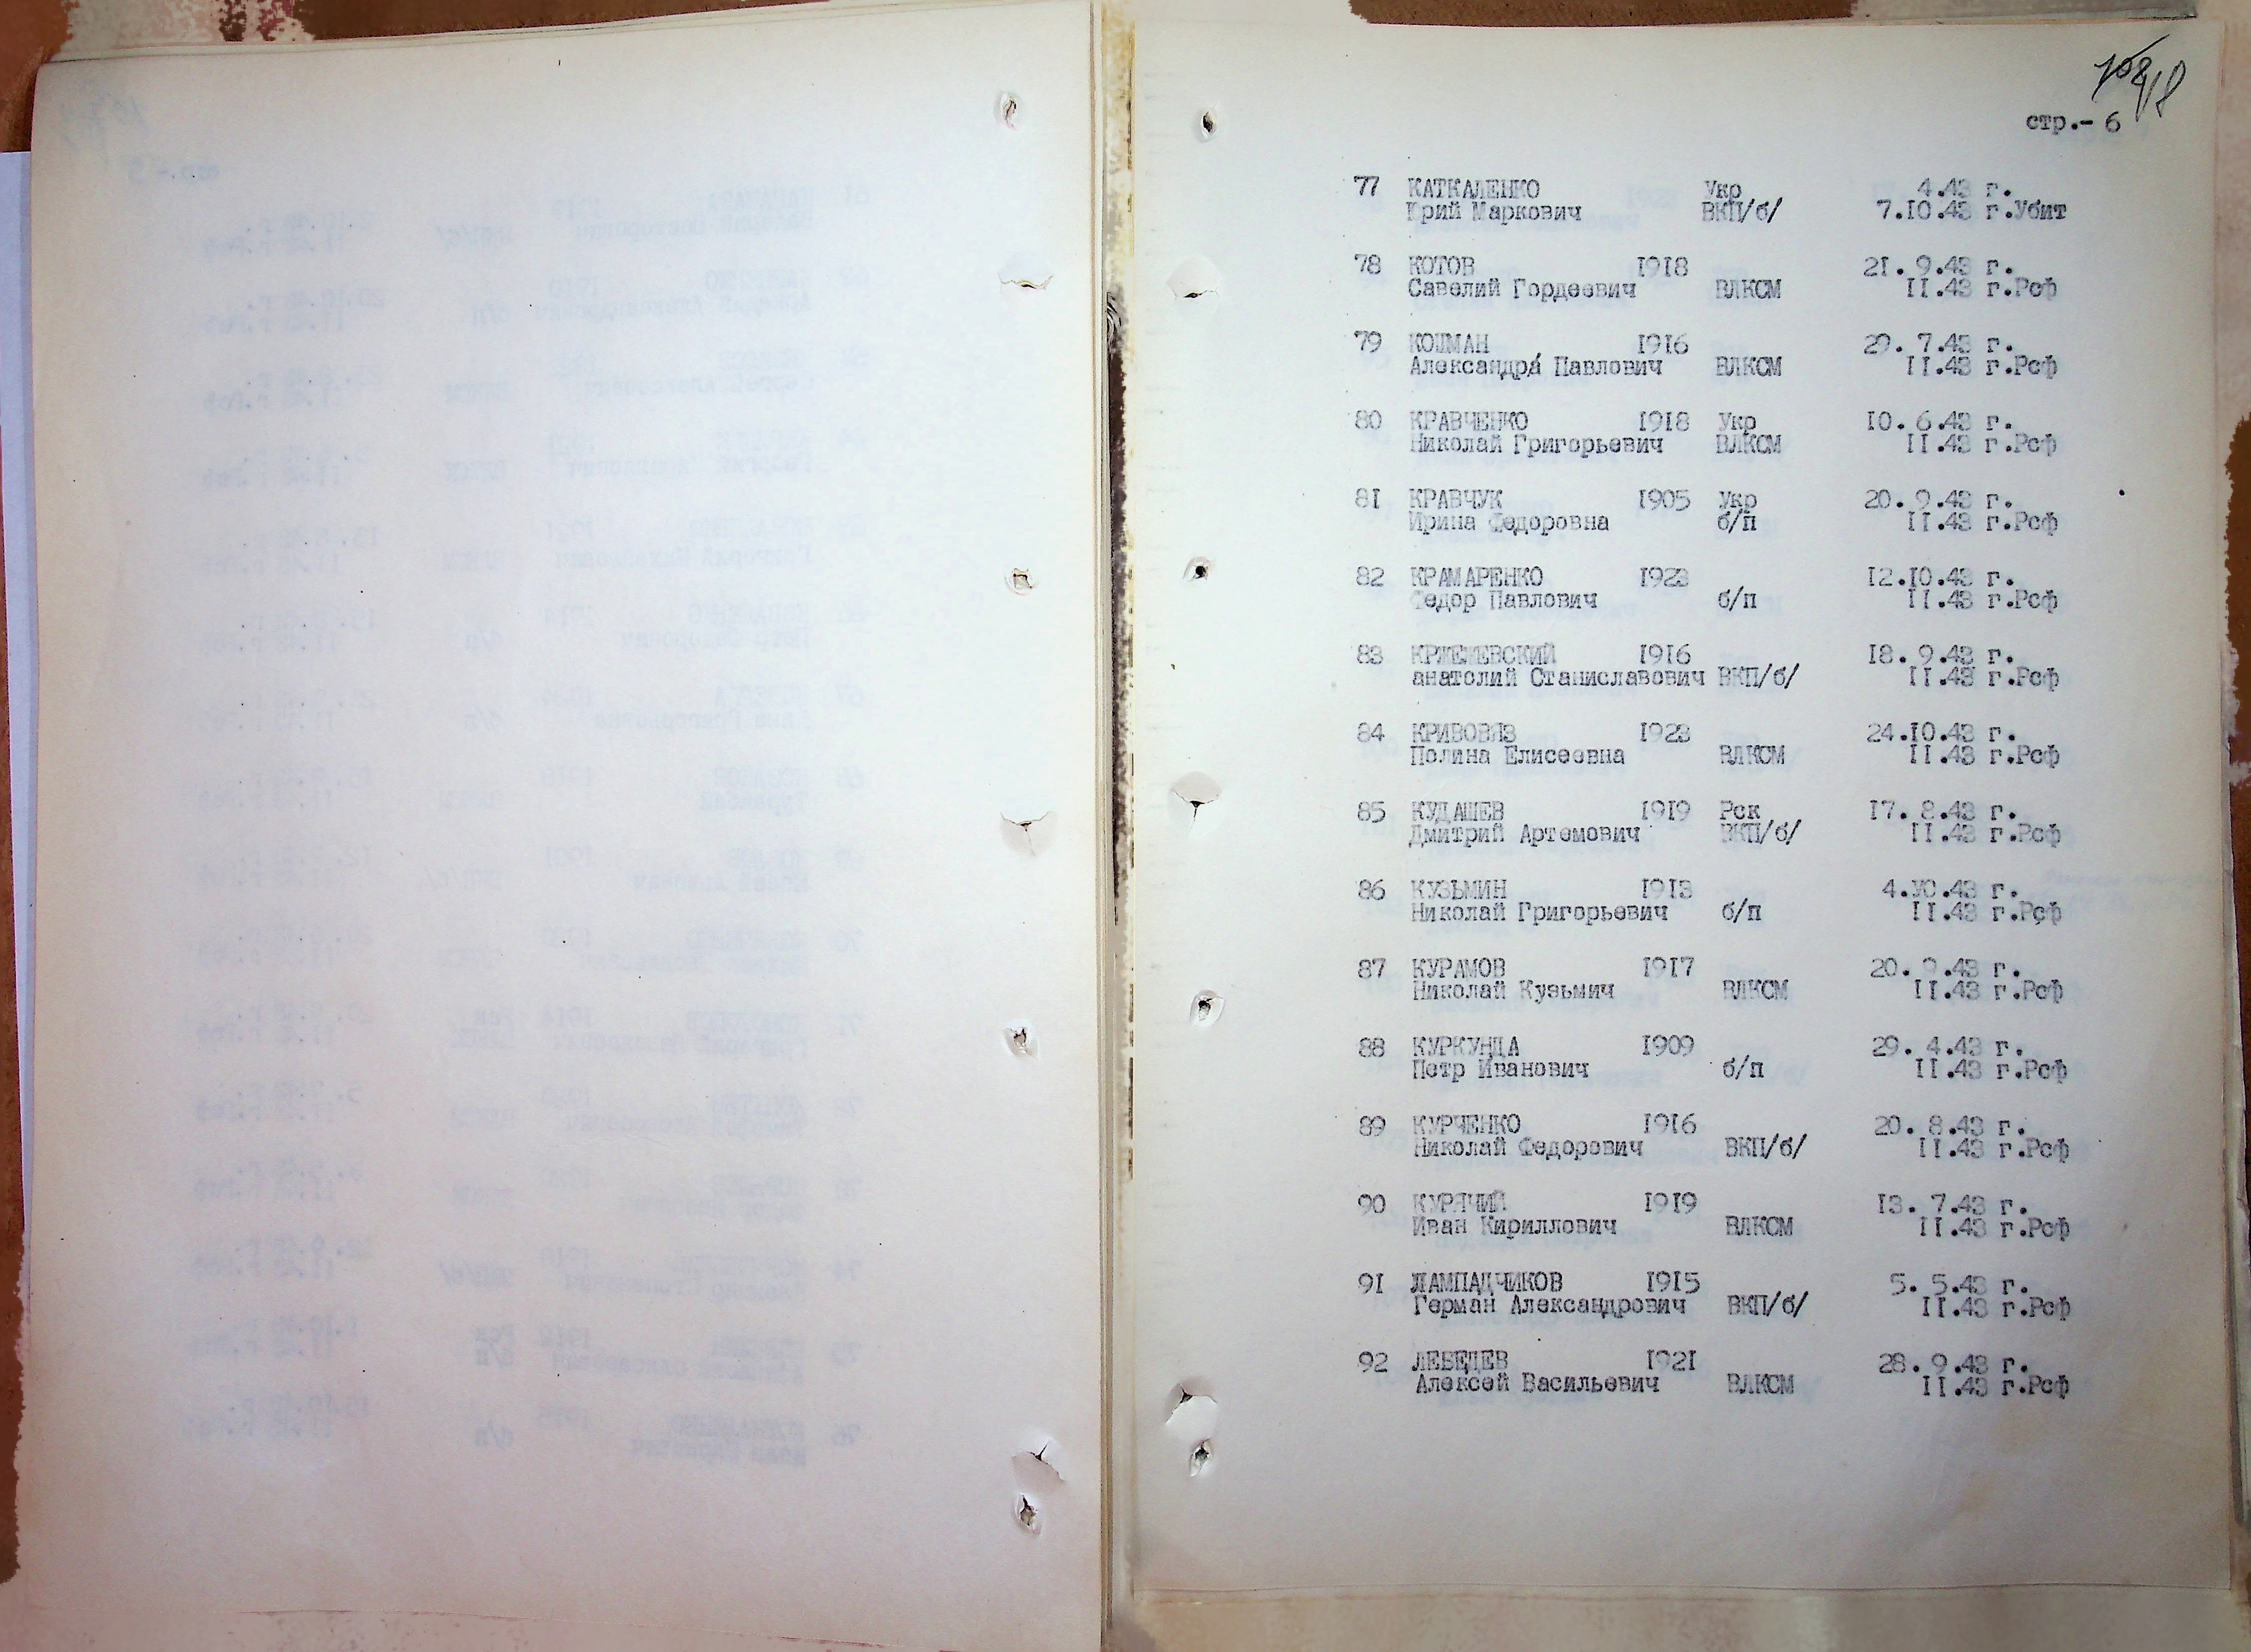 стр.- 6
77 КАТКАЛЕНКО Укр 4.43 г.
Юрий Маркович ВКП/б/ 7.10.43 г.Убит
78 КОТОВ 1918 21. 9.43 г.
Савелий Гордеевич ВЛКСМ 11.43 г.Рсф
79 КОЦМАН 1916 29. 7.43 г.
Александра Павлович ВЛКСМ 11.43 г.Рсф
80 КРАВЧЕНКО 1918 Укр 10. 6.43 г.
Николай Григорьевич ВЛКСМ 11.43 г.Рсф
81 КРАВЧУК 1905 Укр 20. 9.43 г.
Ирина Федоровна б/п 11.43 г.Рсф
82 КРАМАРЕНКО 1923 12.10.43 г.
Федор Павлович б/п 11.43 г.Рсф
83 КРЖЕЖЕВСКИЙ 1916 18. 9.43 г.
анатолий Станиславович ВКП/б/ 11.43 г.Рсф
84 КРИВОВЯЗ 1923 24.10.43 г.
Полина Елисеевна ВЛКСМ 11.43 г.Рсф
85 КУДАШЕВ 1919 Рск 17. 8.43 г.
Дмитрий Артемович ВКП/б/ 11.43 г.Рсф
86 КУЗЬМИН 1913 4.10.43 г.
Николай Григорьевич б/п 11.43 г.Рсф
87 КУРАМОВ 1917 20. 9.43 г.
Николай Кузьмич ВЛКСМ 11.43 г.Рсф
88 КУРКУНДА 1909 29. 4.43 г.
Петр Иванович б/п 11.43 г.Рсф
89 КУРЧЕНКО 1916 20. 8.43 г.
Николай Федорович ВКП/б/ 11.43 г.Рсф
90 КУРЯЧИЙ 1919 13. 7.43 г.
Иван Кириллович ВЛКСМ 11.43 г.Рсф
91 ЛАМПАДЧИКОВ 1915 5. 5.43 г.
Герман Александрович ВКП/б/ 11.43 г.Рсф
92 ЛЕБЕДЕВ 1921 28. 9.43 г.
Алексей Васильевич ВЛКСМ 11.43 г.Рсф